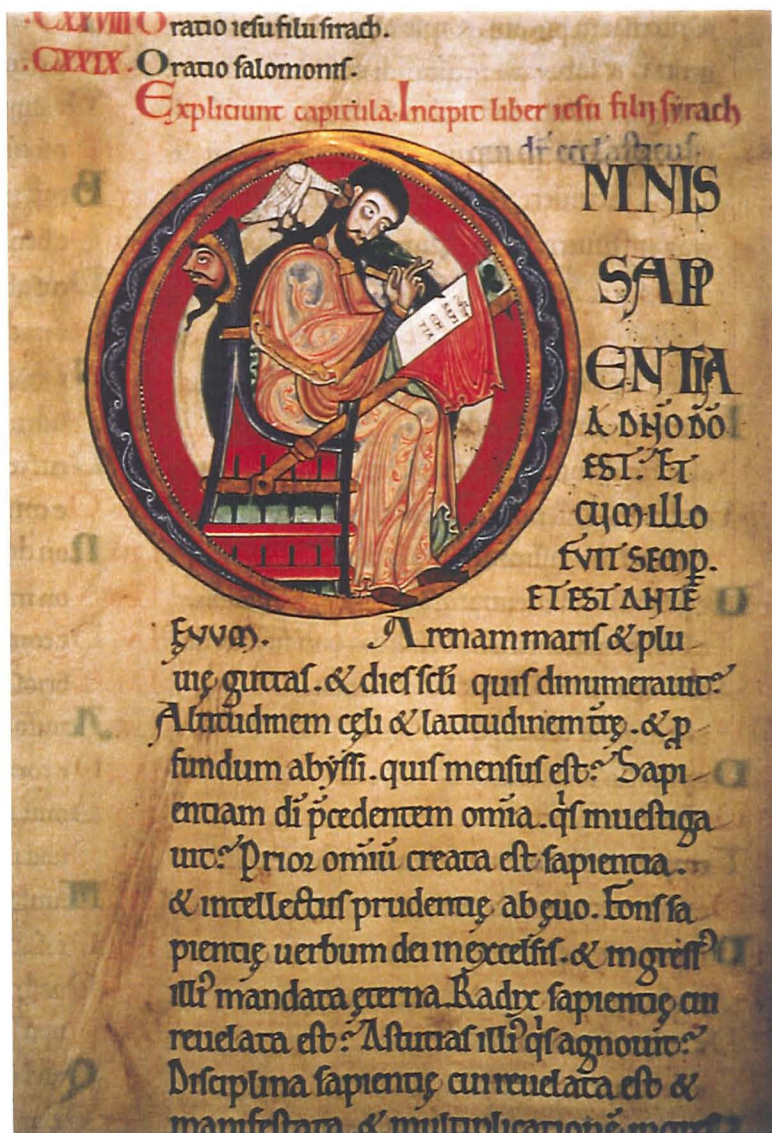 .CXXVIII Oratio iesu filii sirach.
.CXXIX. Oratio salomonis.
Expliciunt capitula. Incipit liber iesu filij sýrach
dr̄ eccl'asticus.
OMNIS
SAPI
ENTIA
A DŃO DŌO
EST. ET
CUM ILLO
FVIT SEMꝑ.
ET EST ANTE
ĘVVM. Arenam maris & plu
uię guttas. & dies scl̄i quis dinumerauit?
Altitudinem cęli & latitudinem t̄rę. & ꝓ
fundum abýssi. quis mensus est? Sapi
entiam dī p̄cedentem om̄ia. qⁱs inuestiga
uit? Prior omiū creata est sapientia.
& intellectus prudentię ab ęuo. Fons sa
pientię uerbum dei in excelsis. & ingress⁹
illi⁹ mandata ęterna. Radix sapientię cui
reuelata est? Astutias illi⁹ qⁱs agnouit?
Disciplina sapientię cui reuelata est &
manifestata. & multiplicationē ingress
EN SAPI
TIA